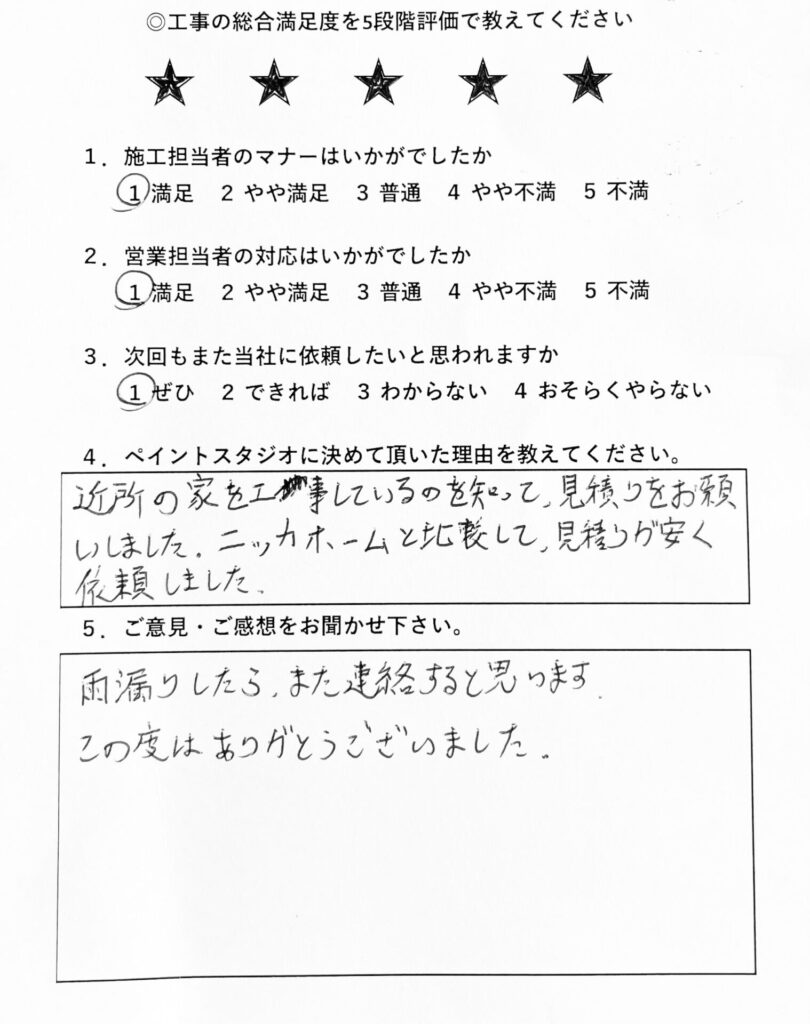 ◎工事の総合満足度を5段階評価で教えてください
★ ★ ★ ★ ★
1．施工担当者のマナーはいかがでしたか
1 満足 2 やや満足 3 普通 4 やや不満 5 不満
2．営業担当者の対応はいかがでしたか
1 満足 2 やや満足 3 普通 4 やや不満 5 不満
3．次回もまた当社に依頼したいと思われますか
1 ぜひ 2 できれば 3 わからない 4 おそらくやらない
4．ペイントスタジオに決めて頂いた理由を教えてください。
近所の家を工事しているのを知って、見積りをお願
いしました。ニッカホームと比較して、見積りが安く
依頼しました。
5．ご意見・ご感想をお聞かせ下さい。
雨漏りしたら、また連絡すると思います。
この度はありがとうございました。